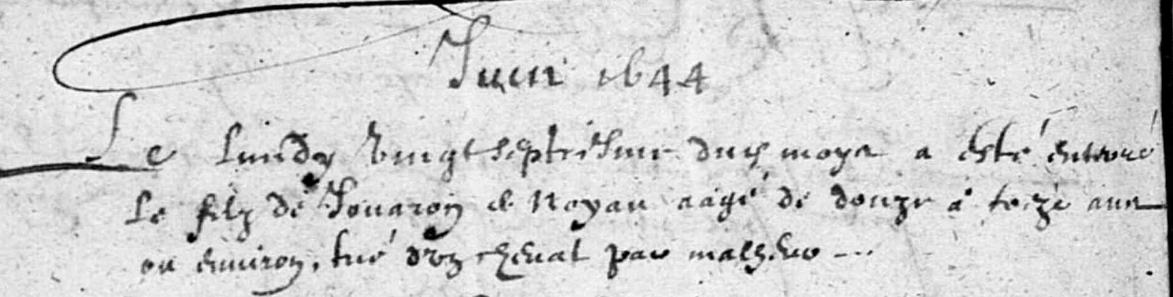 Juin 1644
Le lundy vingt septiesme dud moys a esté enterré
le filz de Jouaron de Noyau aagé de douze à treize ans
ou environ, tué d'un cheval par malheur